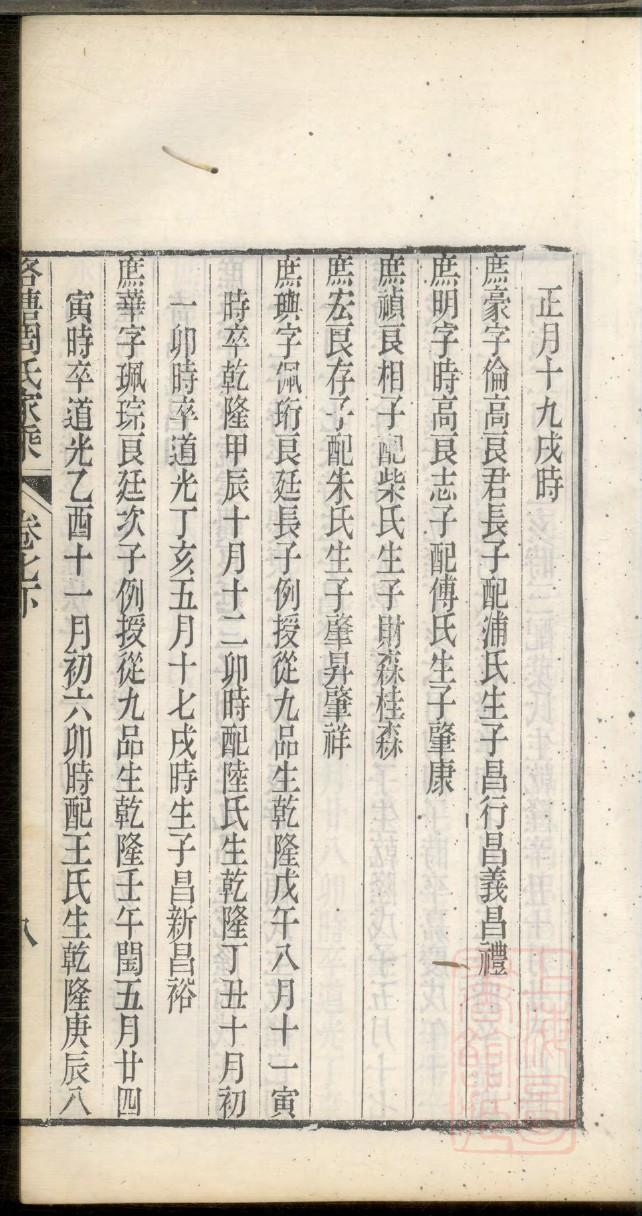 正月十九戌時
庶豪字倫高良君長子配浦氏生子昌行昌義昌禮
庶明字時高良志子配傅氏生子肇康
庶禎良相子配柴氏生子財森桂森
庶宏良存子配朱氏生子肇昇肇祥
庶璵字佩珩良廷長子例授從九品生乾隆戊午八月十一寅
時卒乾隆甲辰十月十二卯時配陸氏生乾隆丁丑十月初
一卯時卒道光丁亥五月十七戌時生子昌新昌裕
庶華字珮琮良廷次子例授從九品生乾隆壬午閏五月廿四
寅時卒道光乙酉十一月初六卯時配王氏生乾隆庚辰八
周氏家乘
卷七下
八